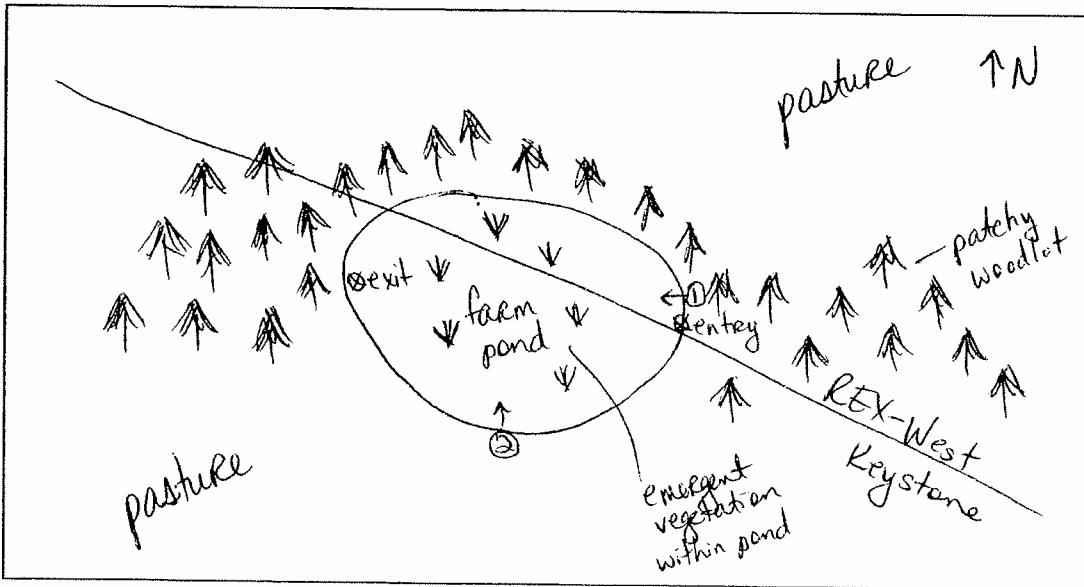 pasture
↑ N
patchy
woodlot
exit
farm
pond
← ①
entry
REX-West
Keystone
↑
②
pasture
emergent
vegetation
within pond